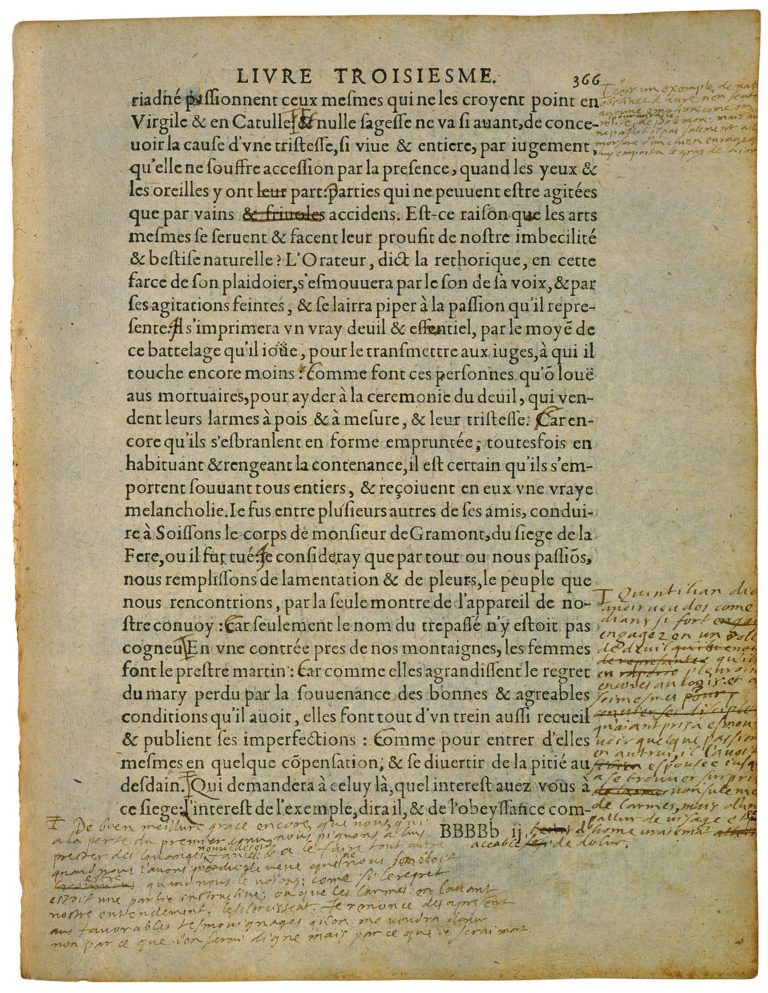 LIVRE TROISIESME. 366
riadné passionnent ceux mesmes qui ne les croyent point en
Virgile & en Catulle: & nulle sagesse ne va si auant, de conce-
uoir la cause d'vne tristesse, si viue & entiere, par iugement,
qu'elle ne souffre accession par la presence, quand les yeux &
les oreilles y ont leur part: parties qui ne peuuent estre agitées
que par vains & friuoles accidens. Est-ce raison que les arts
mesmes se seruent & facent leur proufit de nostre imbecilité
& bestise naturelle? L'Orateur, dict la rethorique, en cette
farce de son plaidoier, s'esmouuera par le son de sa voix, & par
ses agitations feintes, & se lairra piper à la passion qu'il repre-
sente: Il s'imprimera vn vray deuil & essentiel, par le moyẽ de
ce battelage qu'il ioüe, pour le transmettre aux iuges, à qui il
touche encore moins: Comme font ces personnes qu'õ louë
aus mortuaires, pour ayder à la ceremonie du deuil, qui ven-
dent leurs larmes à pois & à mesure, & leur tristesse: Car en-
core qu'ils s'esbranlent en forme empruntée, toutesfois en
habituant & rengeant la contenance, il est certain qu'ils s'em-
portent souuant tous entiers, & reçoiuent en eux vne vraye
melancholie. Ie fus entre plusieurs autres de ses amis, condui-
re à Soissons le corps de monsieur de Gramont, du siege de la
Fere, ou il fut tué: Ie consideray que par tout ou nous passiõs,
nous remplissons de lamentation & de pleurs, le peuple que
nous rencontrions, par la seule montre de l'appareil de no-
stre conuoy: Car seulement le nom du trepassé n'y estoit pas
cogneu. En vne contrée pres de nos montaignes, les femmes
font le prestre martin: Car comme elles agrandissent le regret
du mary perdu par la souuenance des bonnes & agreables
conditions qu'il auoit, elles font tout d'vn trein aussi recueil
& publient ses imperfections: Comme pour entrer d'elles
mesmes en quelque cõpensation, & se diuertir de la pitié au
desdain. Qui demandera à celuy là, quel interest auez vous à
ce siege: l'interest de l'exemple, dira il, & de l'obeyssance com-
BBBBb ij
Quintilian dict
auoir veu des come
dians si fort
engagez en un rolle
de deuil
encores au logis: et
de soimesmes
quaiant pris a esmou
uoir quelque passion
en autrui, il l'auoit
espousee iusq
a se trouuer surpris
nonsulement
de larmes, mais d'un
pallur de visage et
d'home vraiemant
accablé de dolur.
De bien meillure grace encore que nous qui
a la perte du premier conu
prester des louanges
quand nous l'auons perdu
quand nous le voions: come si le regret
estoit une partie instructive; ou que les larmes en lauant
nostre entendement, l'esclercissent. Je renonce des apresent
aus favorables tesmouignages qu'on me voudra doner
non par ce que j'en serai digne mais par ce que ie serai mort.